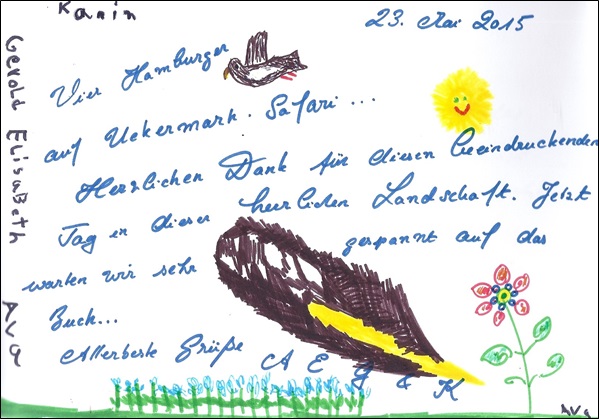 Karin
23. Mai 2015
Gerold Elisabeth Ava
Vier Hamburger
auf Uckermark-Safari...
Herzlichen Dank für diesen beeindruckenden
Tag in dieser herrlichen Landschaft. Jetzt
warten wir sehr gespannt auf das
Buch...
Allerbeste Grüße A E G & K
Ava